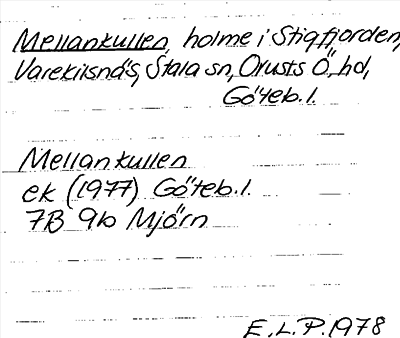 Mellankullen, holme i Stigfjorden,
Varekilsnäs, Stala sn, Orusts Ö. hd,
Göteb.l.
Mellankullen
ek (1977) Göteb.l.
7B 9b Mjörn
E.L.P. 1978